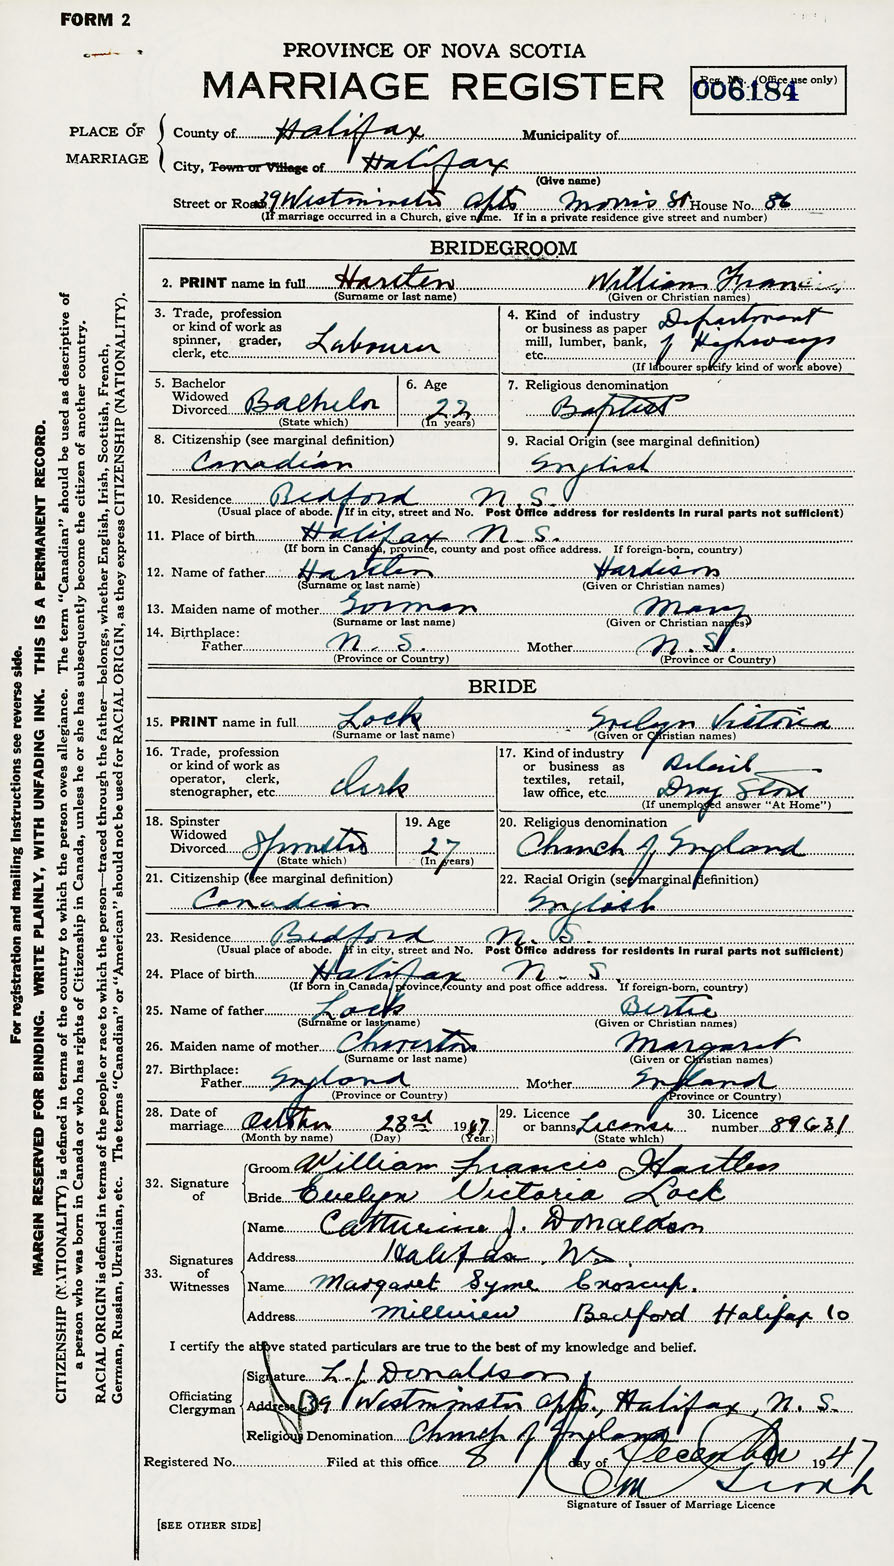 FORM 2
PROVINCE OF NOVA SCOTIA
MARRIAGE REGISTER
Reg. No. (Office use only)
006184
PLACE OF MARRIAGE
County of Halifax Municipality of
City, Town or Village of Halifax
(Give name)
Street or Road 39 Westminster Apts Morris St House No. 86
(If marriage occurred in a Church, give name. If in a private residence give street and number)
BRIDEGROOM
2. PRINT name in full Hartlen William Francis
(Surname or last name) (Given or Christian names)
3. Trade, profession or kind of work as spinner, grader, clerk, etc. Labourer
4. Kind of industry or business as paper mill, lumber, bank, etc. Department of Highways
(If labourer specify kind of work above)
5. Bachelor Widowed Divorced Bachelor
(State which)
6. Age 22
(In years)
7. Religious denomination
Baptist
8. Citizenship (see marginal definition)
Canadian
9. Racial Origin (see marginal definition)
English
10. Residence Bedford N.S.
(Usual place of abode. If in city, street and No. Post Office address for residents in rural parts not sufficient)
11. Place of birth Halifax N.S.
(If born in Canada, province, county and post office address. If foreign-born, country)
12. Name of father Hartlen Hardison
(Surname or last name) (Given or Christian names)
13. Maiden name of mother Gorman Mary
(Surname or last name) (Given or Christian names)
14. Birthplace:
Father N.S. Mother N.S.
(Province or Country) (Province or Country)
BRIDE
15. PRINT name in full Lock Evelyn Victoria
(Surname or last name) (Given or Christian names)
16. Trade, profession or kind of work as operator, clerk, stenographer, etc. Clerk
17. Kind of industry or business as textiles, retail, law office, etc. Retail Drug Store
(If unemployed answer "At Home")
18. Spinster Widowed Divorced Spinster
(State which)
19. Age 27
(In years)
20. Religious denomination
Church of England
21. Citizenship (see marginal definition)
Canadian
22. Racial Origin (see marginal definition)
English
23. Residence Bedford N.S.
(Usual place of abode. If in city, street and No. Post Office address for residents in rural parts not sufficient)
24. Place of birth Halifax N.S.
(If born in Canada, province, county and post office address. If foreign-born, country)
25. Name of father Lock Bertie
(Surname or last name) (Given or Christian names)
26. Maiden name of mother Chaverton Margaret
(Surname or last name) (Given or Christian names)
27. Birthplace:
Father England Mother England
(Province or Country) (Province or Country)
28. Date of marriage October 28rd 1947
(Month by name) (Day) (Year)
29. Licence or banns License
(State which)
30. Licence number 89631
32. Signature of
Groom William Francis Hartlen
Bride Evelyn Victoria Lock
33. Signatures of Witnesses
Name Catherine J. Donaldson
Address Halifax NS.
Name Margaret Syme
Address Millview Bedford Halifax Co
I certify the above stated particulars are true to the best of my knowledge and belief.
Officiating Clergyman
Signature L. J. Donaldson
Address 39 Westminster Apts., Halifax, N.S.
Religious Denomination Church of England
Registered No. Filed at this office 8 day of December 1947
Signature of Issuer of Marriage Licence
[SEE OTHER SIDE]
For registration and mailing instructions see reverse side.
MARGIN RESERVED FOR BINDING. WRITE PLAINLY, WITH UNFADING INK. THIS IS A PERMANENT RECORD.
CITIZENSHIP (NATIONALITY) is defined in terms of the country to which the person owes allegiance. The term "Canadian" should be used as descriptive of
a person who was born in Canada or who has rights of Citizenship in Canada, unless he or she has subsequently become the citizen of another country.
RACIAL ORIGIN is defined in terms of the people or race to which the person—traced through the father—belongs, whether English, Irish, Scottish, French,
German, Russian, Ukrainian, etc. The terms "Canadian" or "American" should not be used for RACIAL ORIGIN, as they express CITIZENSHIP (NATIONALITY).